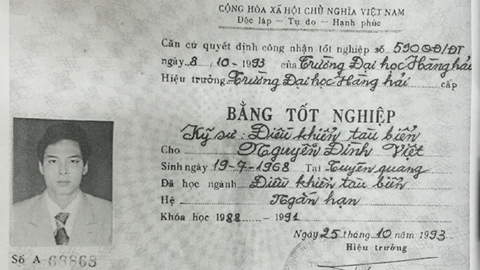 CỘNG HÒA XÃ HỘI CHỦ NGHĨA VIỆT NAM
Độc lập - Tự do - Hạnh phúc
Căn cứ quyết định công nhận tốt nghiệp số 590QĐ/ĐT
ngày 8 / 10 - 1993 của Trường Đại học Hàng hải
Hiệu trưởng Trường Đại học Hàng hải cấp
BẰNG TỐT NGHIỆP
Kỹ sư: Điều khiển tàu biển
Cho Nguyễn Đình Việt
Sinh ngày 19-7-1968 Tại Tuyên quang
Đã học ngành Điều khiển tàu biển
Hệ Ngắn hạn
Khóa học 1988 - 1991
Ngày 25 tháng 10 năm 1993
Hiệu trưởng
Số A 68868